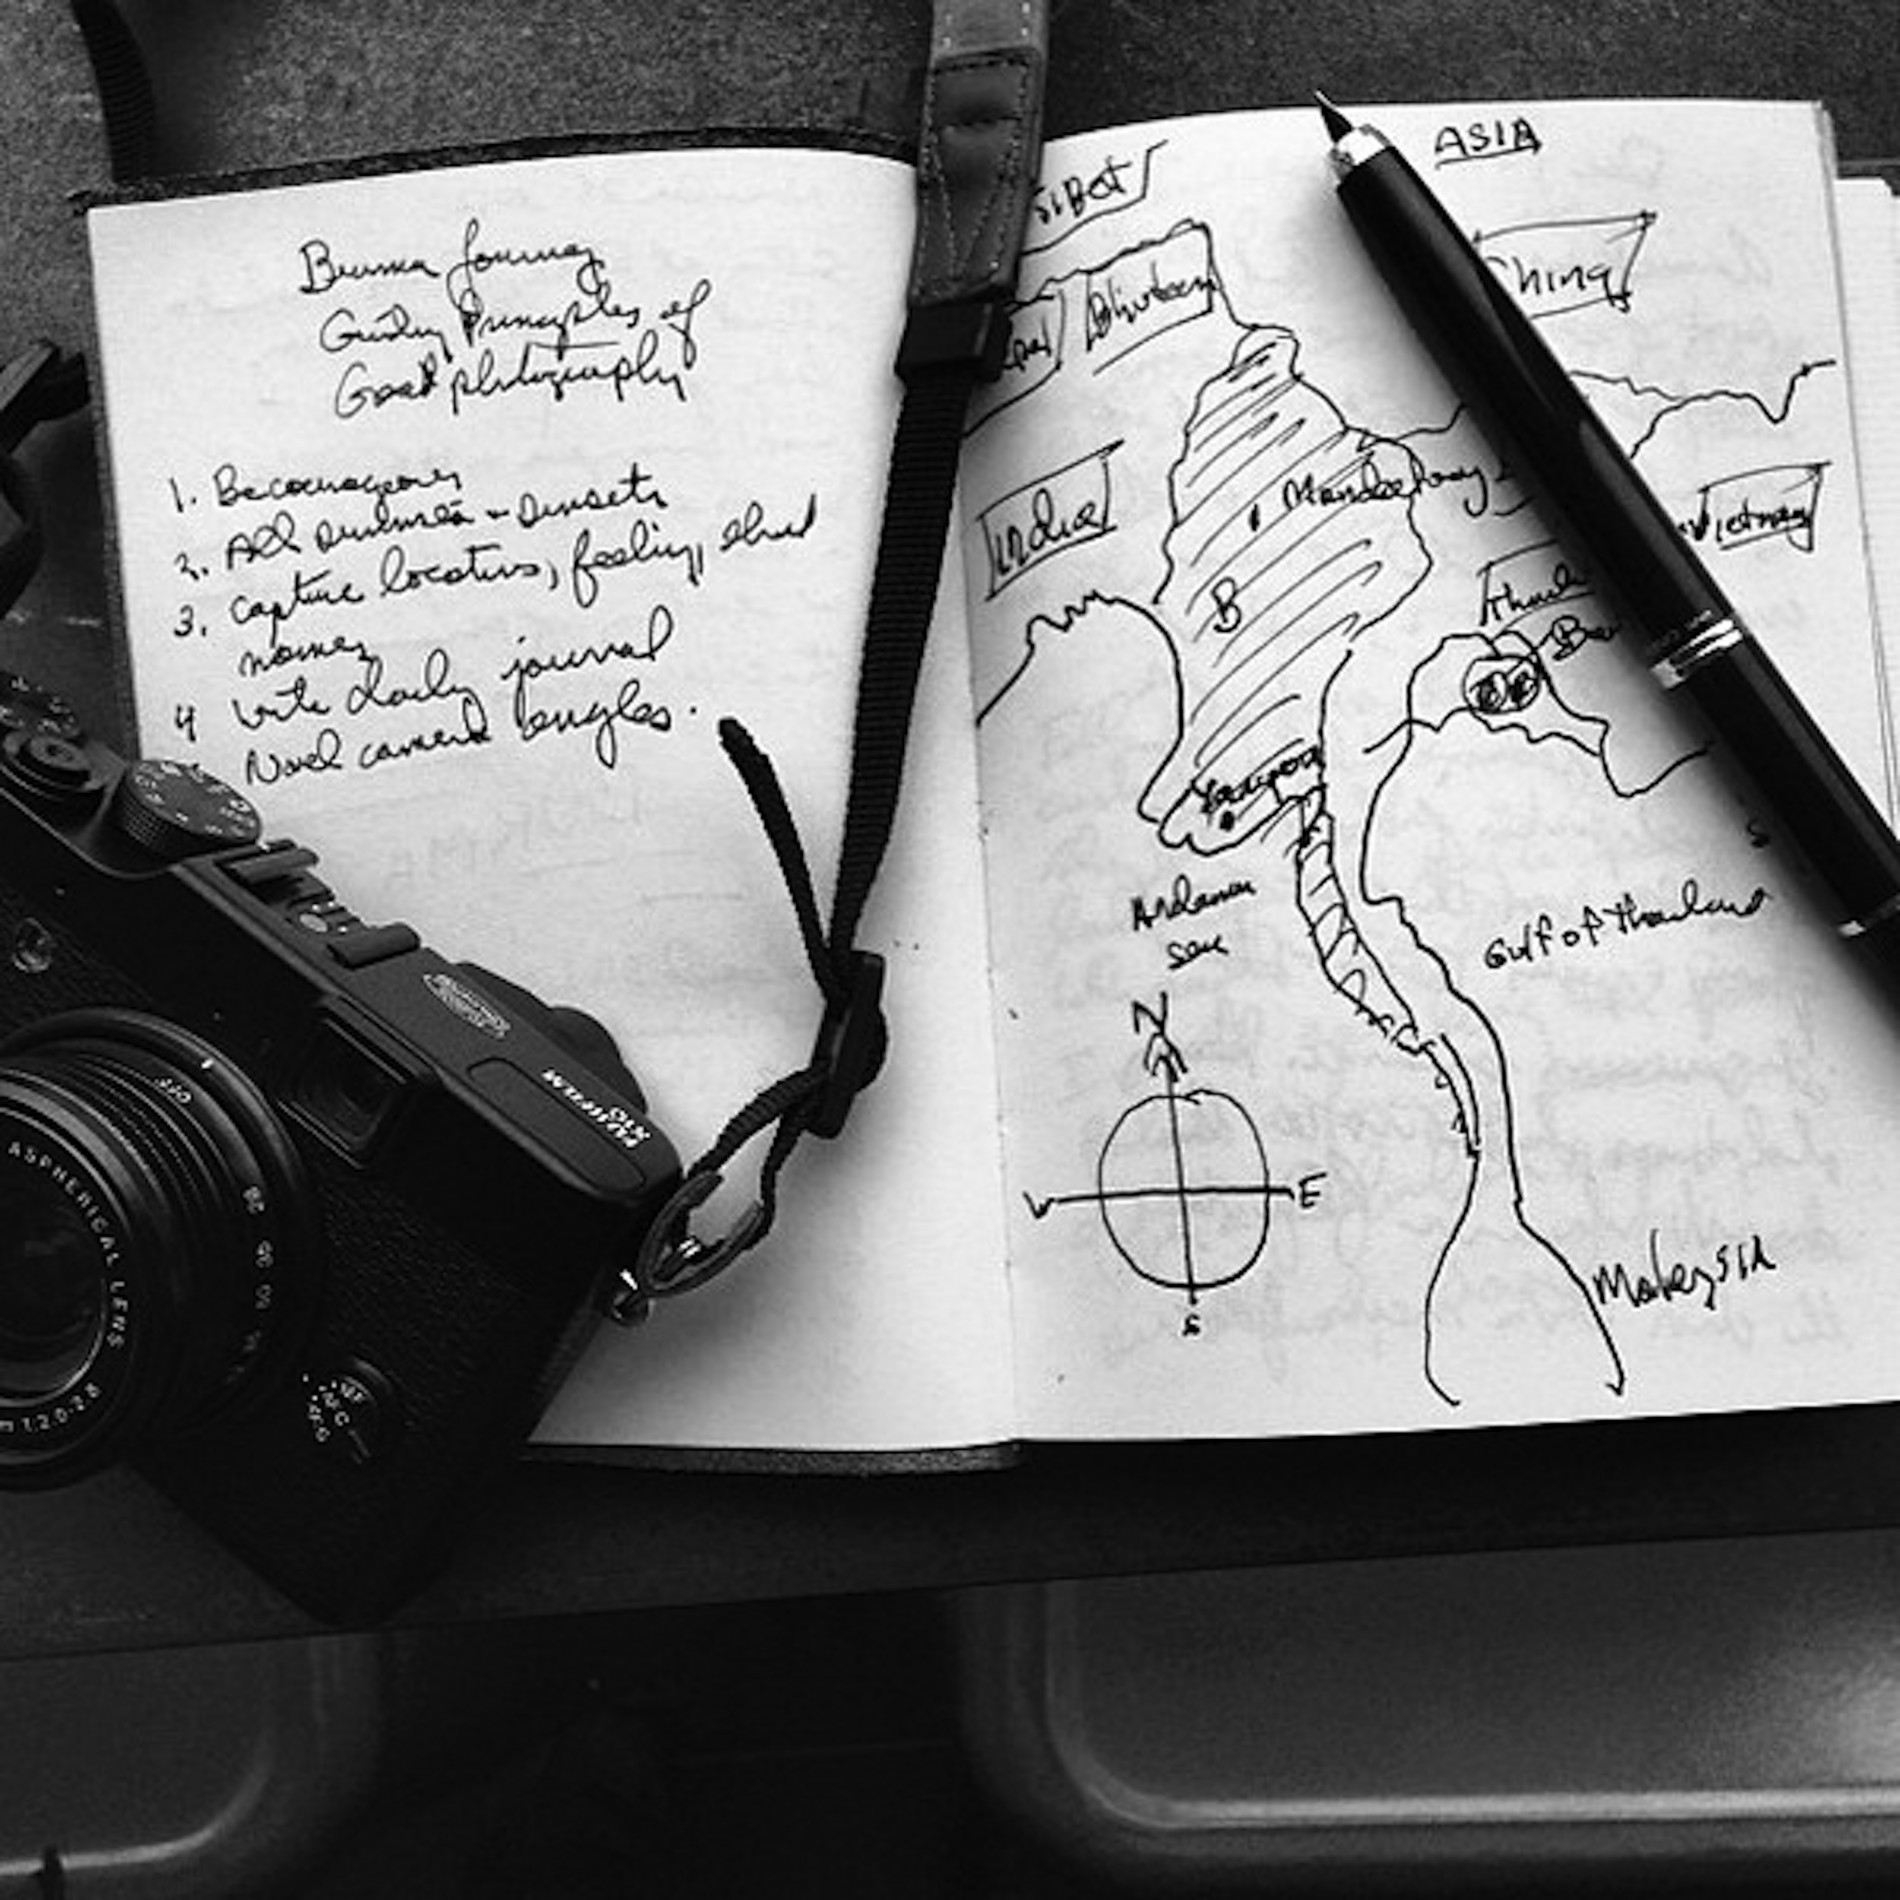 Burma Journey
Guiding Principles of
Good photography
1. Be courageous
2. All sunrises - sunsets
3. Capture locations, feeling, shad
names
4 Write daily journal
Novel camera angles.
ASIA
TIBET
China
Bhuteen
India
Mandalay
Vietnam
B
Yangon
Andaman
sea
Gulf of Thailand
N
W
E
S
Malaysia
FUJIFILM
X10
ASPHERICAL LENS
1:2.0-2.8
OFF